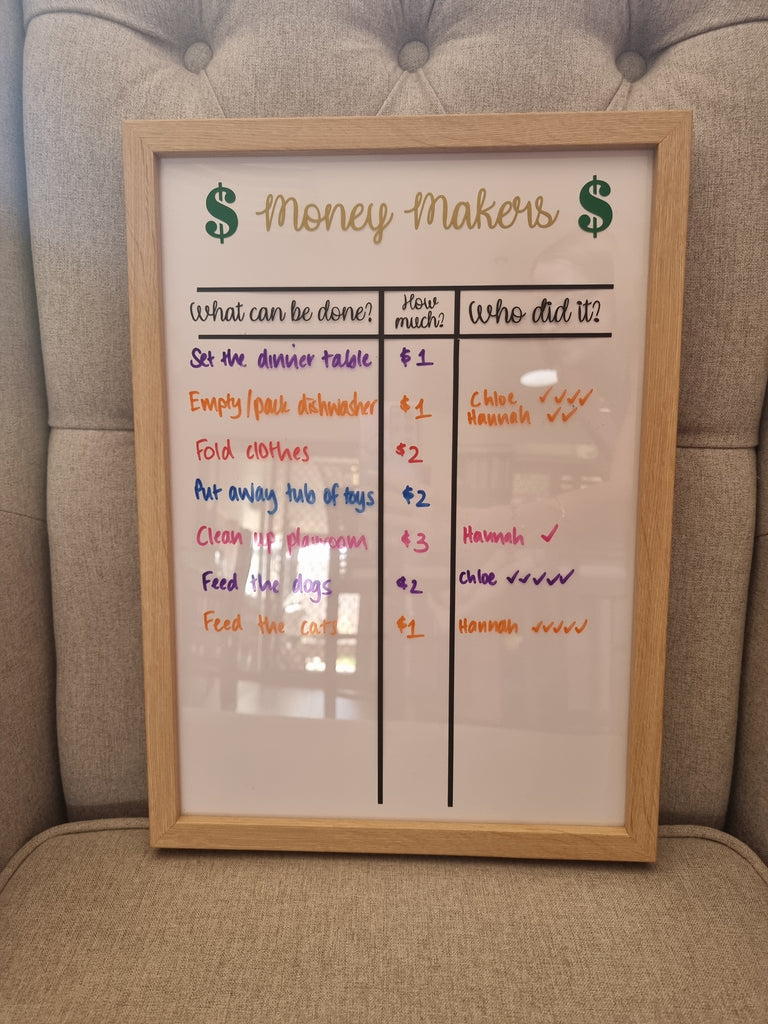 $ Money Makers $
What can be done? How much? Who did it?
Set the dinner table $1
Empty/pack dishwasher $1 Chloe ✓✓✓✓
Hannah ✓✓
Fold clothes $2
Put away tub of toys $2
Clean up playroom $3 Hannah ✓
Feed the dogs $2 Chloe ✓✓✓✓✓
Feed the cats $1 Hannah ✓✓✓✓✓